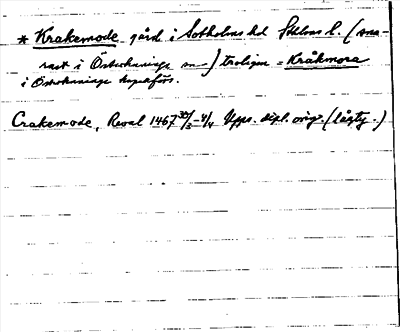 * Krakemode gård i Sotholms hd Sthlms l. (sna-
rast i Österhaninge sn) troligen = Kråkmora
i Österhaninge kapellförs.
Crakemode, Reval 1467 30/3-4/4 Upps. dipl. orig. (lågty.)